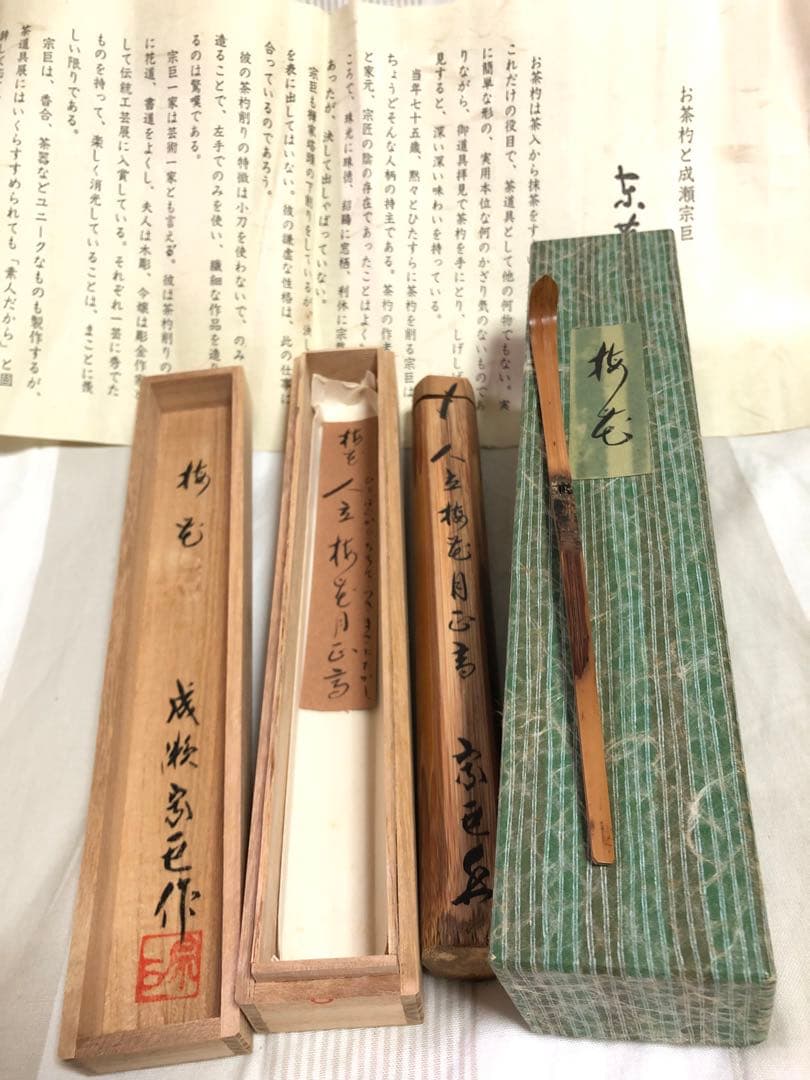 お茶杓と成瀬宗巨
お茶杓は茶入から抹茶をす
これだけの役目で、茶道具として他の何物でもない。実
に簡単な形の、実用本位な何のかざり気のないものであ
りながら、御道具拝見で茶杓を手にとり、しげし
見すると、深い深い味わいを持っている。
当年七十五歳、黙々とひたすらに茶杓を削る宗巨は
ちょうどそんな人柄の持主である。茶杓の作
と家元、宗匠の陰の存在であったことはよく
ころで、珠光に珠徳、紹鷗に窓栖、利休に宗
あったが、決して出しゃばっていない。
宗巨も 下削りをしているが、決し
を表に出してはいない。彼の謙虚な性格は、此の仕事に
合っているのであろう。
彼の茶杓削りの特徴は小刀を使わないで、のみ
造ることで、左手でのみを使い、繊細な作品を造
るのは驚嘆である。
宗巨一家は芸術一家とも言える。彼は茶杓削りの
に花道、書道をよくし、夫人は木彫、令嬢は彫金作家
して伝統工芸展に入賞している。それぞれ一芸に秀でた
ものを持って、楽しく消光していることは、まことに羨
しい限りである。
宗巨は、香合、茶器などユニークなものも製作するが、
茶道具展にはいくらすすめられても「素人だから」と固
梅花
人立梅花月正高
宗巨
梅花
人立梅花月正高
梅花
成瀬宗巨作